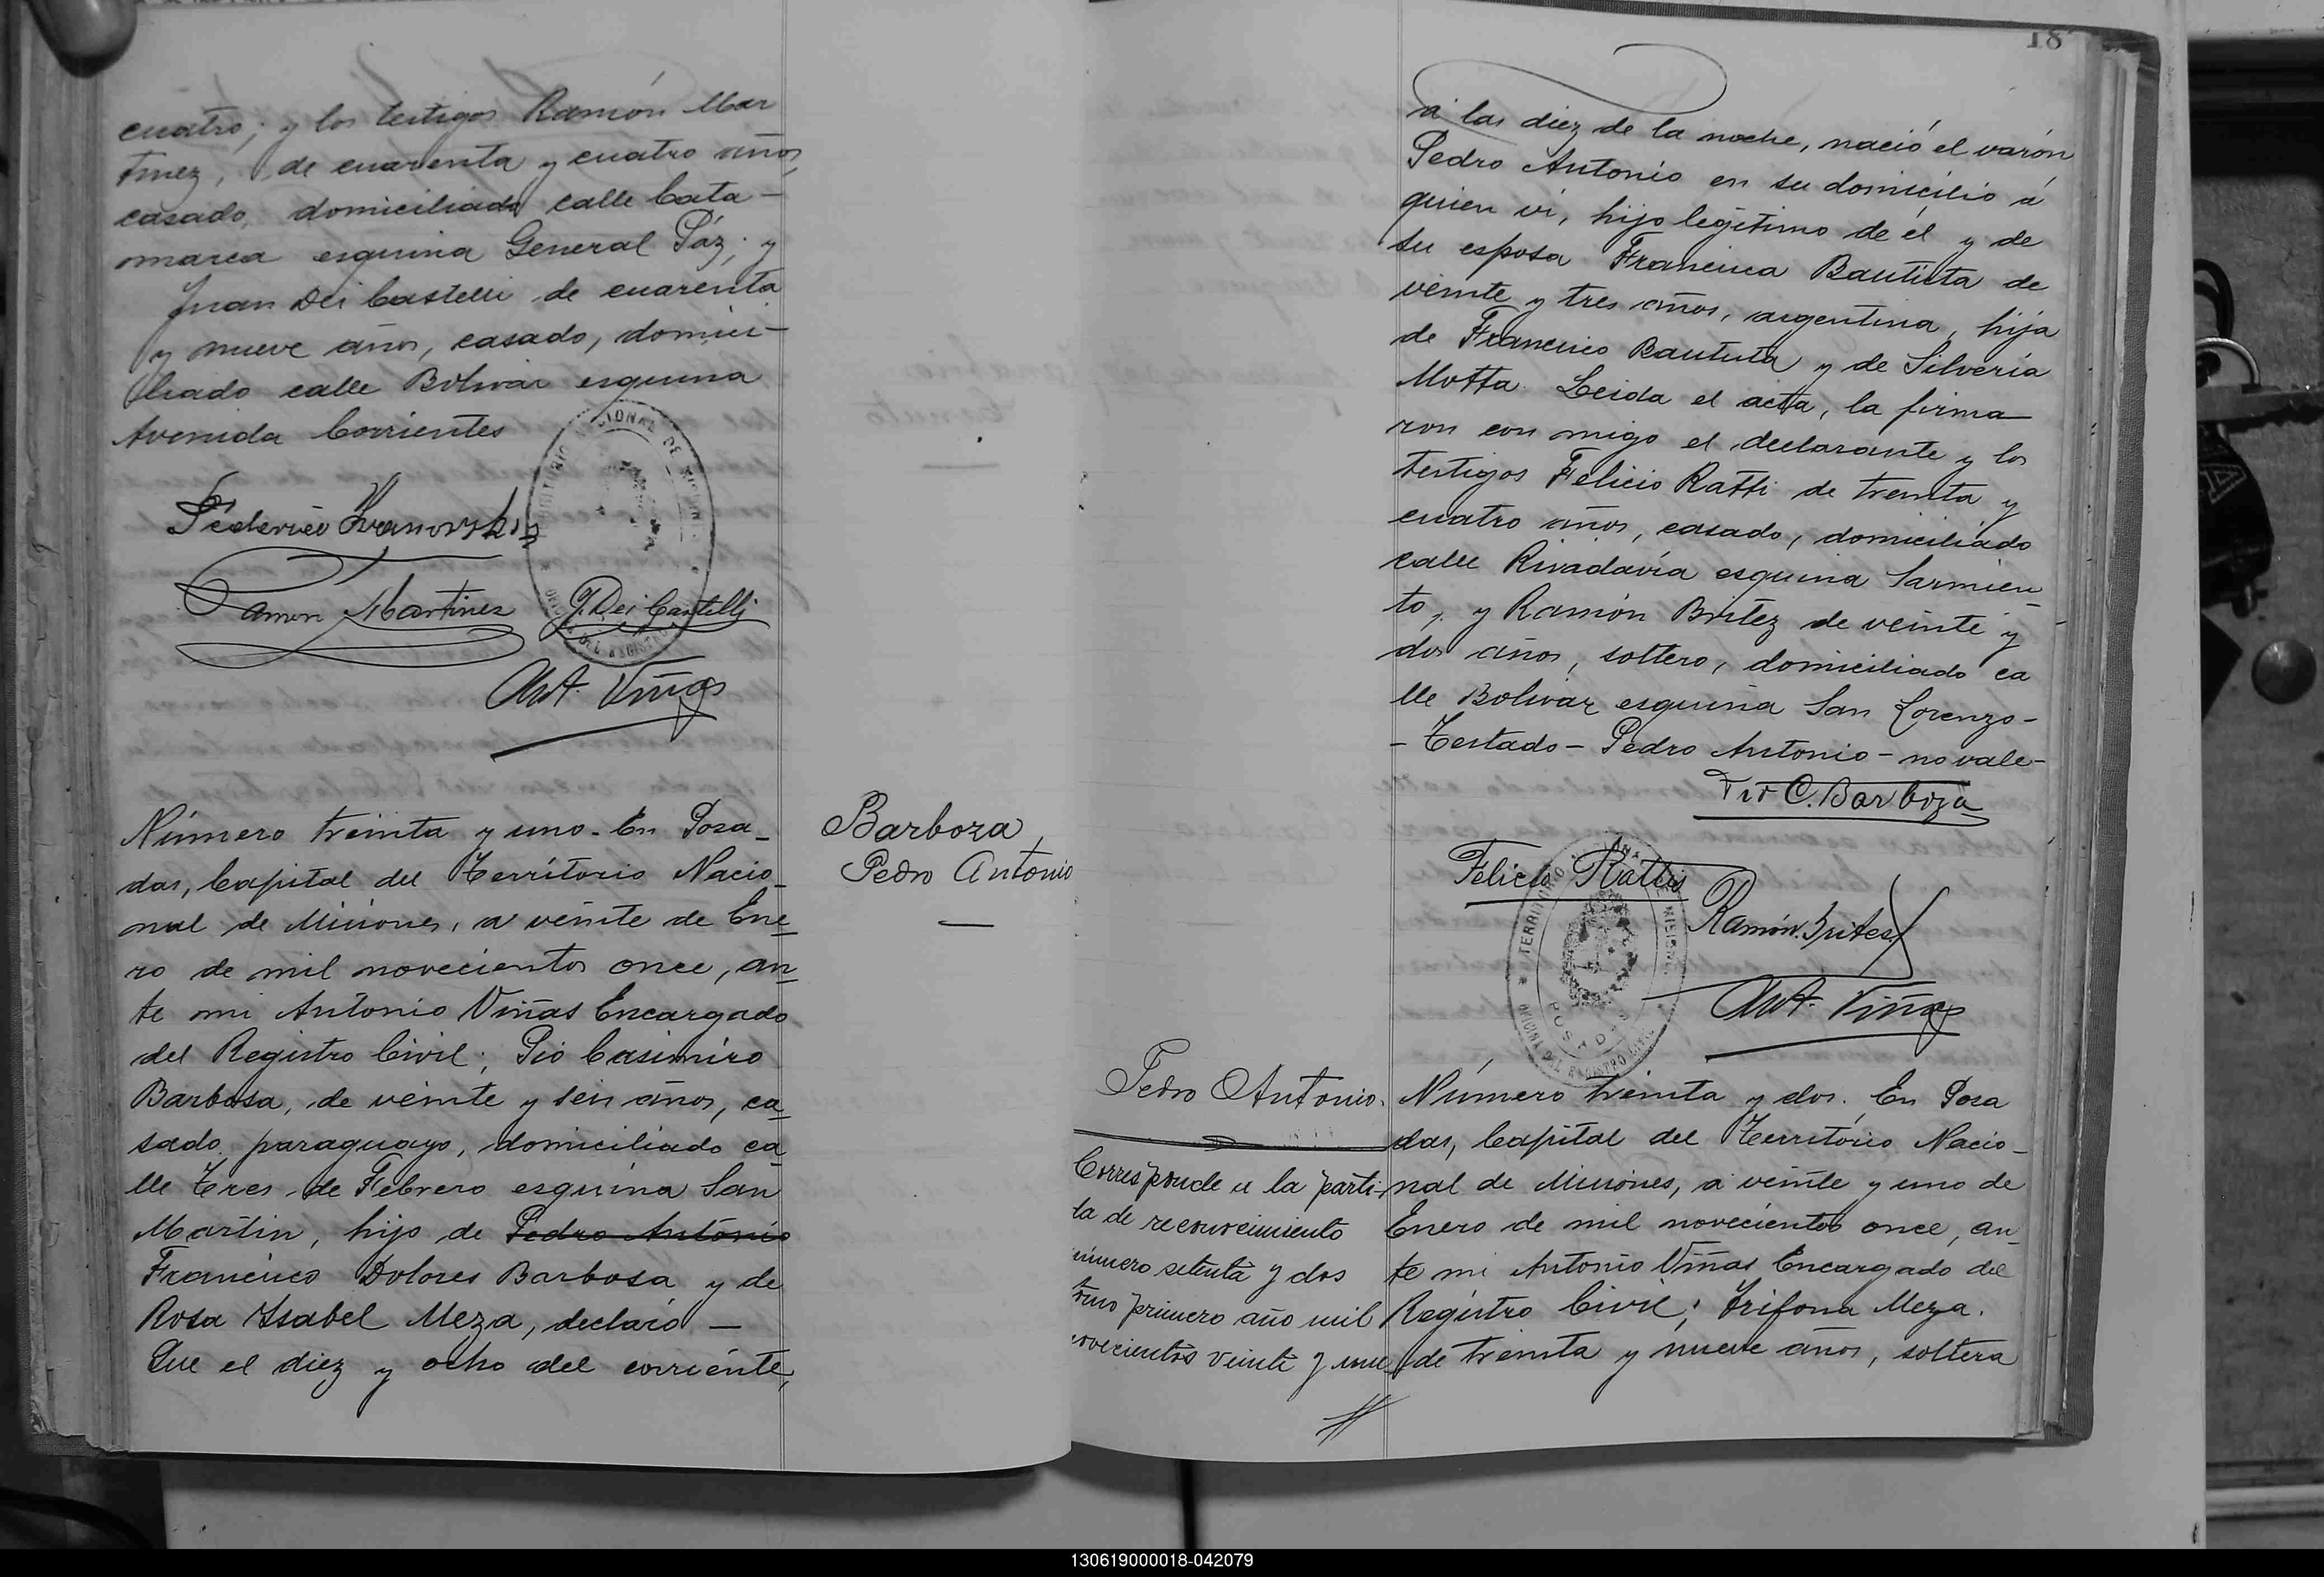 cuatro; y los testigos Ramón Mar
tinez, de cuarenta y cuatro años,
casado, domiciliado calle Cata-
marca esquina General Páz; y
Juan Dei Castelli de cuarenta
y nueve años, casado, domici-
liado calle Bolivar esquina
Avenida Corrientes
Federico Ivanovski
Ramon Martinez J. Dei Castelli
Ant. Viñas
Número treinta y uno - En Posa-
das, Capital del Território Nacio-
nal de Misiones, a veinte de Ene-
ro de mil novecientos once, an-
te mi Antonio Viñas Encargado
del Registro Civil; Pio Casimiro
Barbosa, de veinte y seis años, ca-
sado, paraguayo, domiciliado ca-
lle Tres de Febrero esquina San
Martin, hijo de Pedro Antonio
Francisco Dolores Barbosa y de
Rosa Ysabel Meza, declaró —
Que el diez y ocho del corriente,
Barboza,
Pedro Antonio
18
á las diez de la noche, nació el varón
Pedro Antonio en su domicilio á
quien vi, hijo legitimo de él y de
su esposa Francisca Bautista de
veinte y tres años, argentina, hija
de Francisco Bautista y de Silveria
Motta. Leida el acta, la firma
ron con migo el declarante y los
testigos Felicio Ratti de treinta y
cuatro años, casado, domiciliado
calle Rivadavia esquina Sarmien-
to, y Ramón Britez de veinte y
dos años, soltero, domiciliado ca
lle Bolivar esquina San Lorenzo-
- Testado - Pedro Antonio - no vale-
Pio C. Barboza
Felicio Rattis
Ramón Brites
TERRITORIO NACIONAL DE MISIONES
POSADAS
OFICINA DEL REGISTRO CIVIL
Ant. Viñas
Pedro Antonio.
Corresponde a la parti-
da de reconocimiento
número setenta y dos
tomo primero año mil
novecientos veinte y
Número treinta y dos. En Posa
das, Capital del Território Nacio-
nal de Misiones, á veinte y uno de
Enero de mil novecientos once, an-
te mi Antonio Viñas Encargado del
Registro Civil; Trifona Meza.
de treinta y nueve años, soltera
130619000018-042079